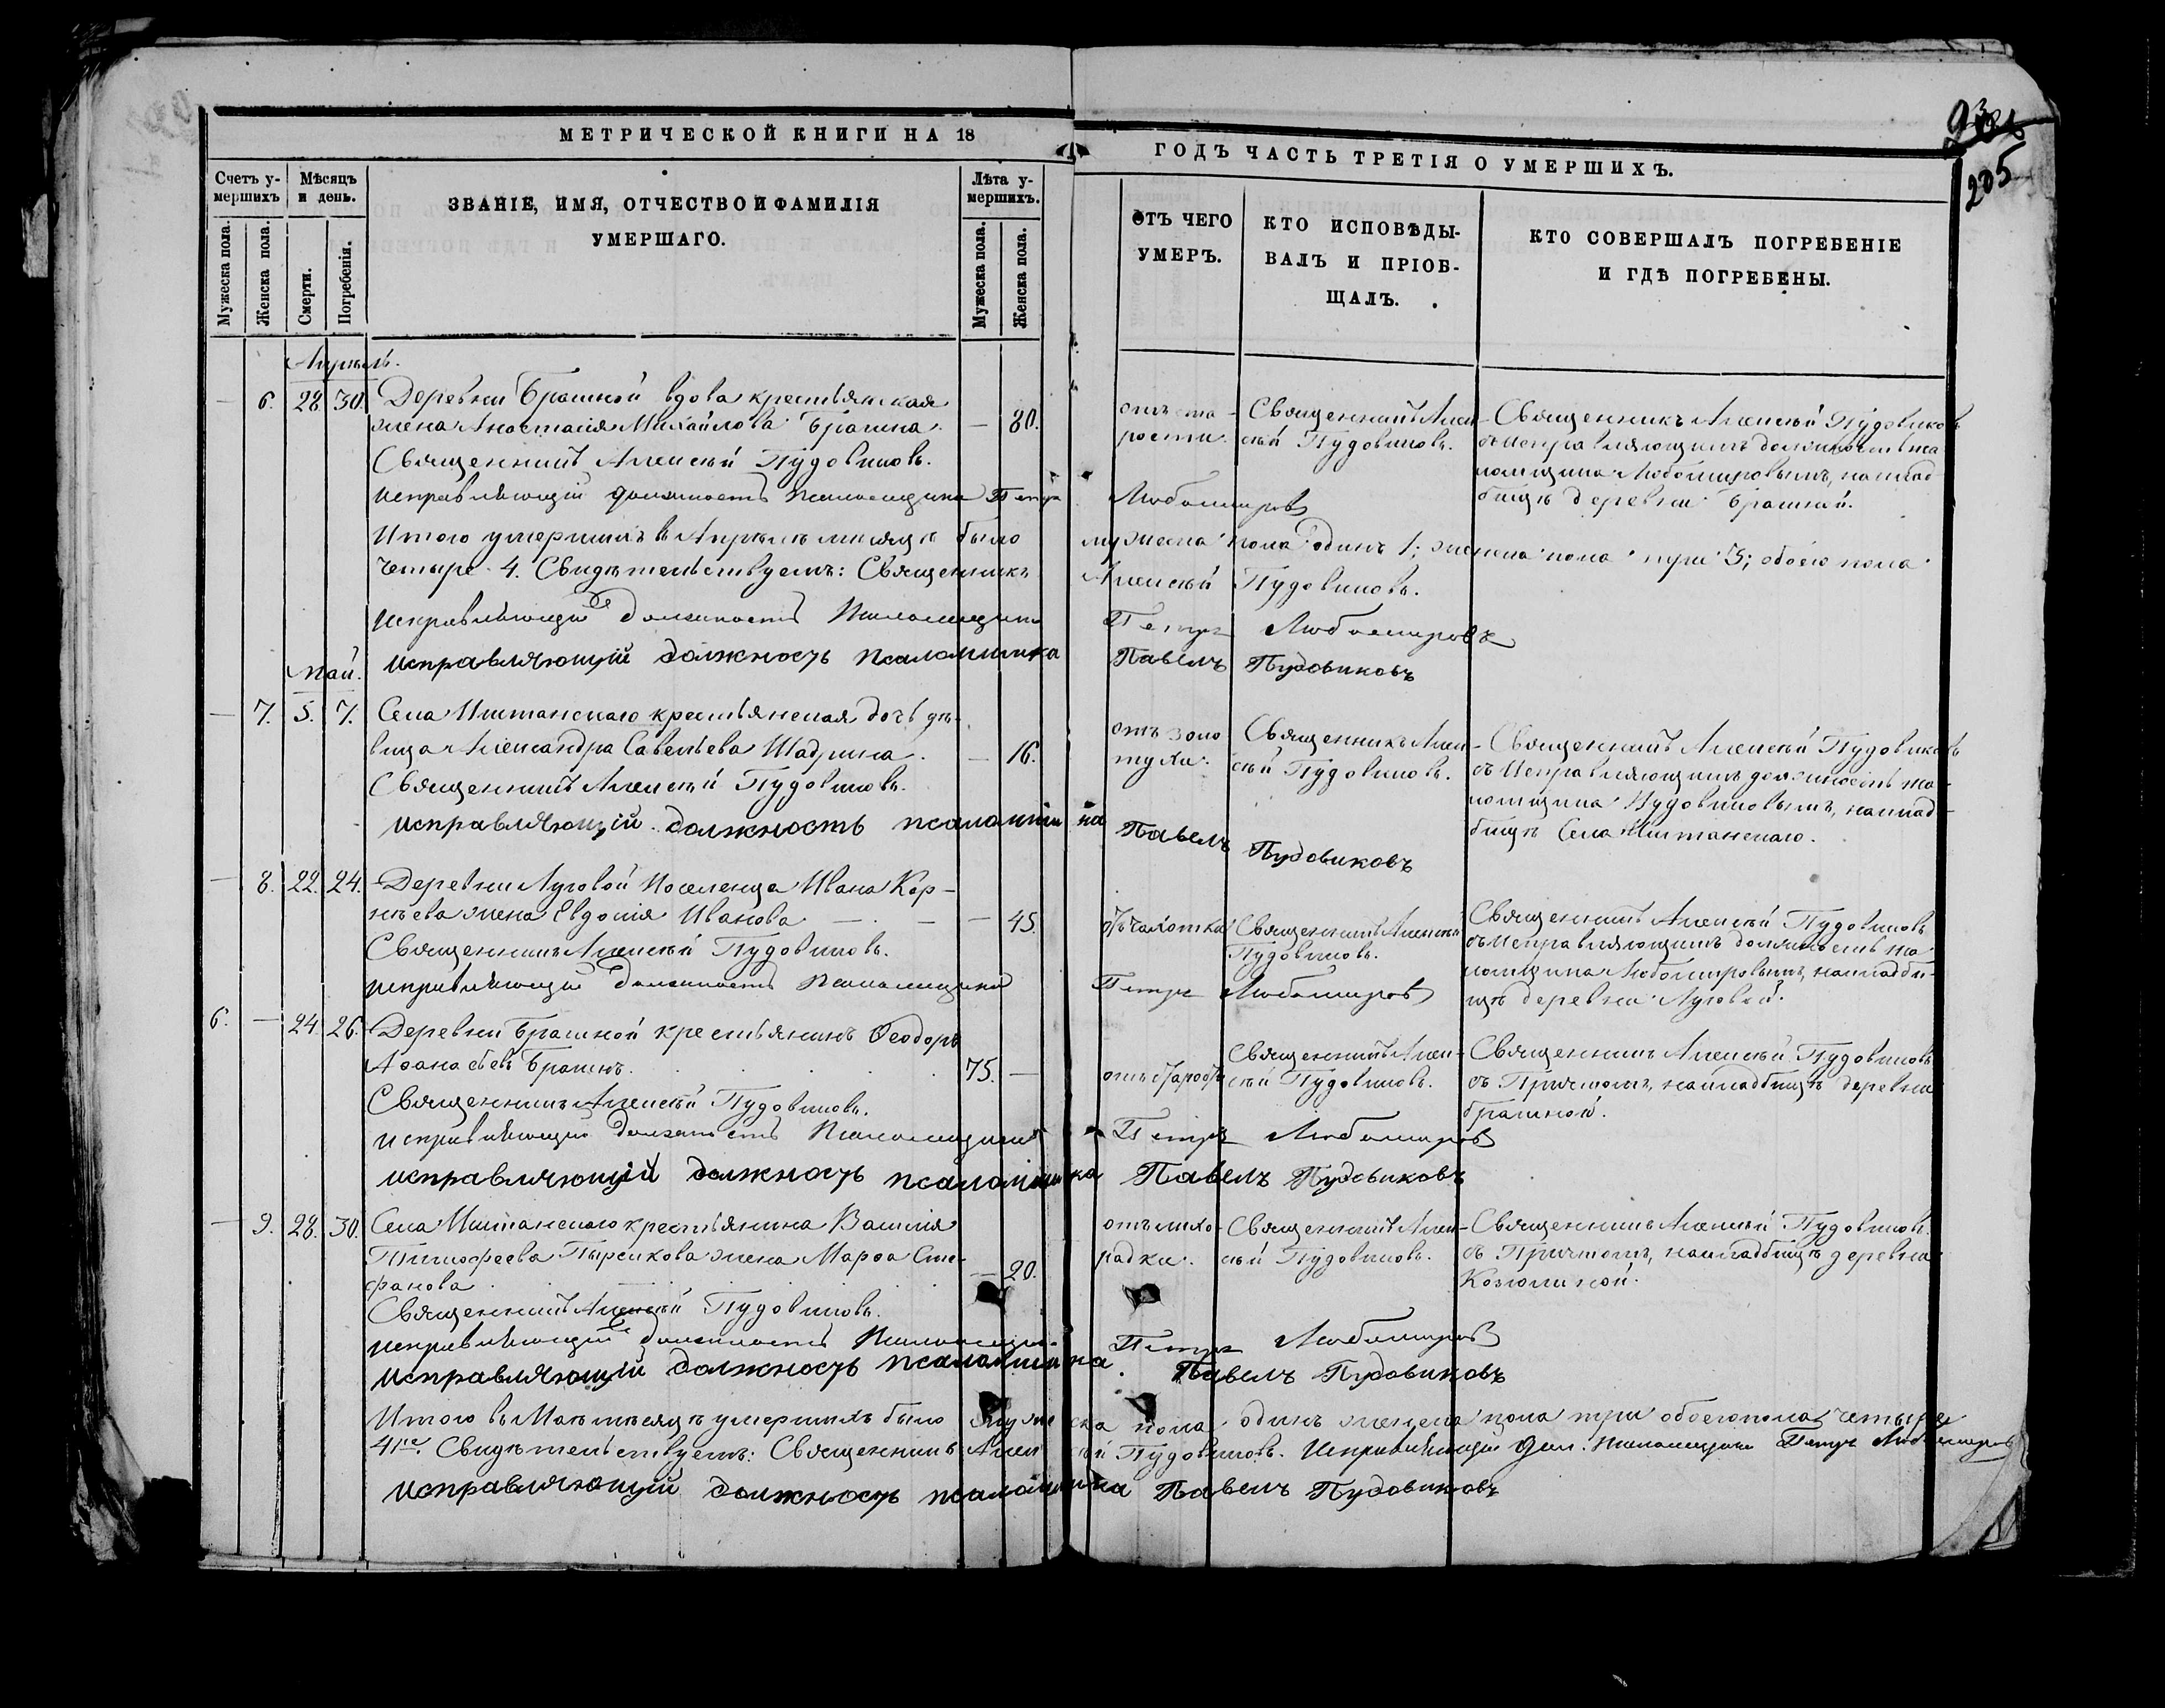 МЕТРИЧЕСКОЙ КНИГИ НА 18
ГОДЪ ЧАСТЬ ТРЕТІЯ О УМЕРШИХЪ.
205
Счетъ у-
мершихъ
Мѣсяцъ
и день.
ЗВАНІЕ, ИМЯ, ОТЧЕСТВО И ФАМИЛІЯ
УМЕРШАГО.
Лѣта у-
мершихъ.
ОТЪ ЧЕГО
УМЕРЪ.
КТО ИСПОВѢДЫ-
ВАЛЪ И ПРІОБ-
ЩАЛЪ.
КТО СОВЕРШАЛЪ ПОГРЕБЕНІЕ
И ГДѢ ПОГРЕБЕНЫ.
Мужеска пола.
Женска пола.
Смерти.
Погребенія.
Мужеска пола.
Женска пола.
Апрѣль.
— 6. 28. 30. Деревни Брагиной вдова крестьянская
жена Анастасія Михайлова Брагина. — 80.
Священникъ Алексѣй Пудовиковъ.
Исправляющій должность псаломщика Петръ
отъ ста-
рости.
Священникъ Алек-
сѣй Пудовиковъ.
Священникъ Алексѣй Пудовиковъ
съ исправляющимъ должность пса-
ломщика Любомировымъ, на клад-
бищѣ деревни Брагиной.
Любомировъ
Итого умершихъ въ Апрѣлѣ мѣсяцѣ было мужеска пола одинъ 1; женска пола три 3; обоего пола
четыре 4. Свидѣтельствуемъ: Священникъ Алексѣй Пудовиковъ.
исправляющій должность Псаломщика Петръ Любомировъ
исправляющій должность псаломщика Павелъ Пудовиковъ
Май.
— 7. 5. 7. Села Иштанскаго крестьянская дочь дѣ-
вица Александра Савельева Шадрина. — 16.
Священникъ Алексѣй Пудовиковъ.
исправляющій должность псаломщика Павелъ Пудовиковъ
отъ золо
тухи.
Священникъ Алек-
сѣй Пудовиковъ.
Священникъ Алексѣй Пудовиковъ
съ Исправляющимъ должность пса-
ломщика Пудовиковымъ, на клад-
бищѣ Села Иштанскаго.
— 8. 22. 24. Деревни Луговой Поселенца Ивана Кор-
нѣева жена Евдокія Иванова — — — 45.
Священникъ Алексѣй Пудовиковъ.
исправляющій должность Псаломщика Петръ Любомировъ
отъ чахотки
Священникъ Алексѣй
Пудовиковъ.
Священникъ Алексѣй Пудовиковъ
съ исправляющимъ должность пса
ломщика Любомировымъ, на кладби-
щѣ деревни Луговой.
6. — 24. 26. Деревни Брагиной крестьянинъ Ѳеодоръ
Аѳанасьевъ Брагинъ. 75. —
Священникъ Алексѣй Пудовиковъ.
исправляющій должность Псаломщика Петръ Любомировъ
исправляющій должность псаломщика Павелъ Пудовиковъ
Священникъ Алек-
сѣй Пудовиковъ.
Священникъ Алексѣй Пудовиковъ
съ Причтомъ, на кладбищѣ деревни
Брагиной.
— 9. 28. 30. Села Иштанскаго крестьянина Василія
Тимофеева Пырсикова жена Марѳа Сте-
фанова — 20.
Священникъ Алексѣй Пудовиковъ.
исправляющій должность Псаломщика Петръ Любомировъ
исправляющій должность псаломщика Павелъ Пудовиковъ
отъ лихо-
радки.
Священникъ Алек-
сѣй Пудовиковъ.
Священникъ Алексѣй Пудовиковъ
съ Причтомъ, на кладбищѣ деревни
Козюлиной.
Итого въ Маѣ мѣсяцѣ умершихъ было мужеска пола одинъ женска пола три обоего пола четыре
4ре. Свидѣтельствуемъ: Священникъ Алексѣй Пудовиковъ. Исправляющій дол. псаломщика Петръ Любомировъ
исправляющій должность псаломщика Павелъ Пудовиковъ